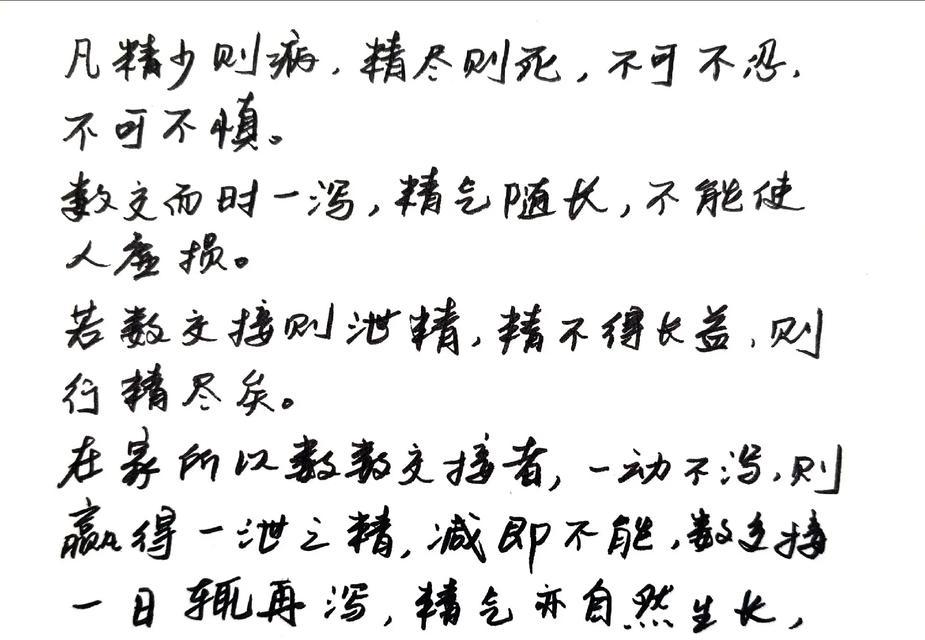 凡精少则病，精尽则死，不可不忍，
不可不慎。
数交而时一泻，精气随长，不能使
人虚损。
若数交接则泄精，精不得长益，则
行精尽矣。
在家所以数数交接者，一动不泻，则
赢得一泄之精，减即不能，数交接
一日辄再泻，精气亦自然生长，